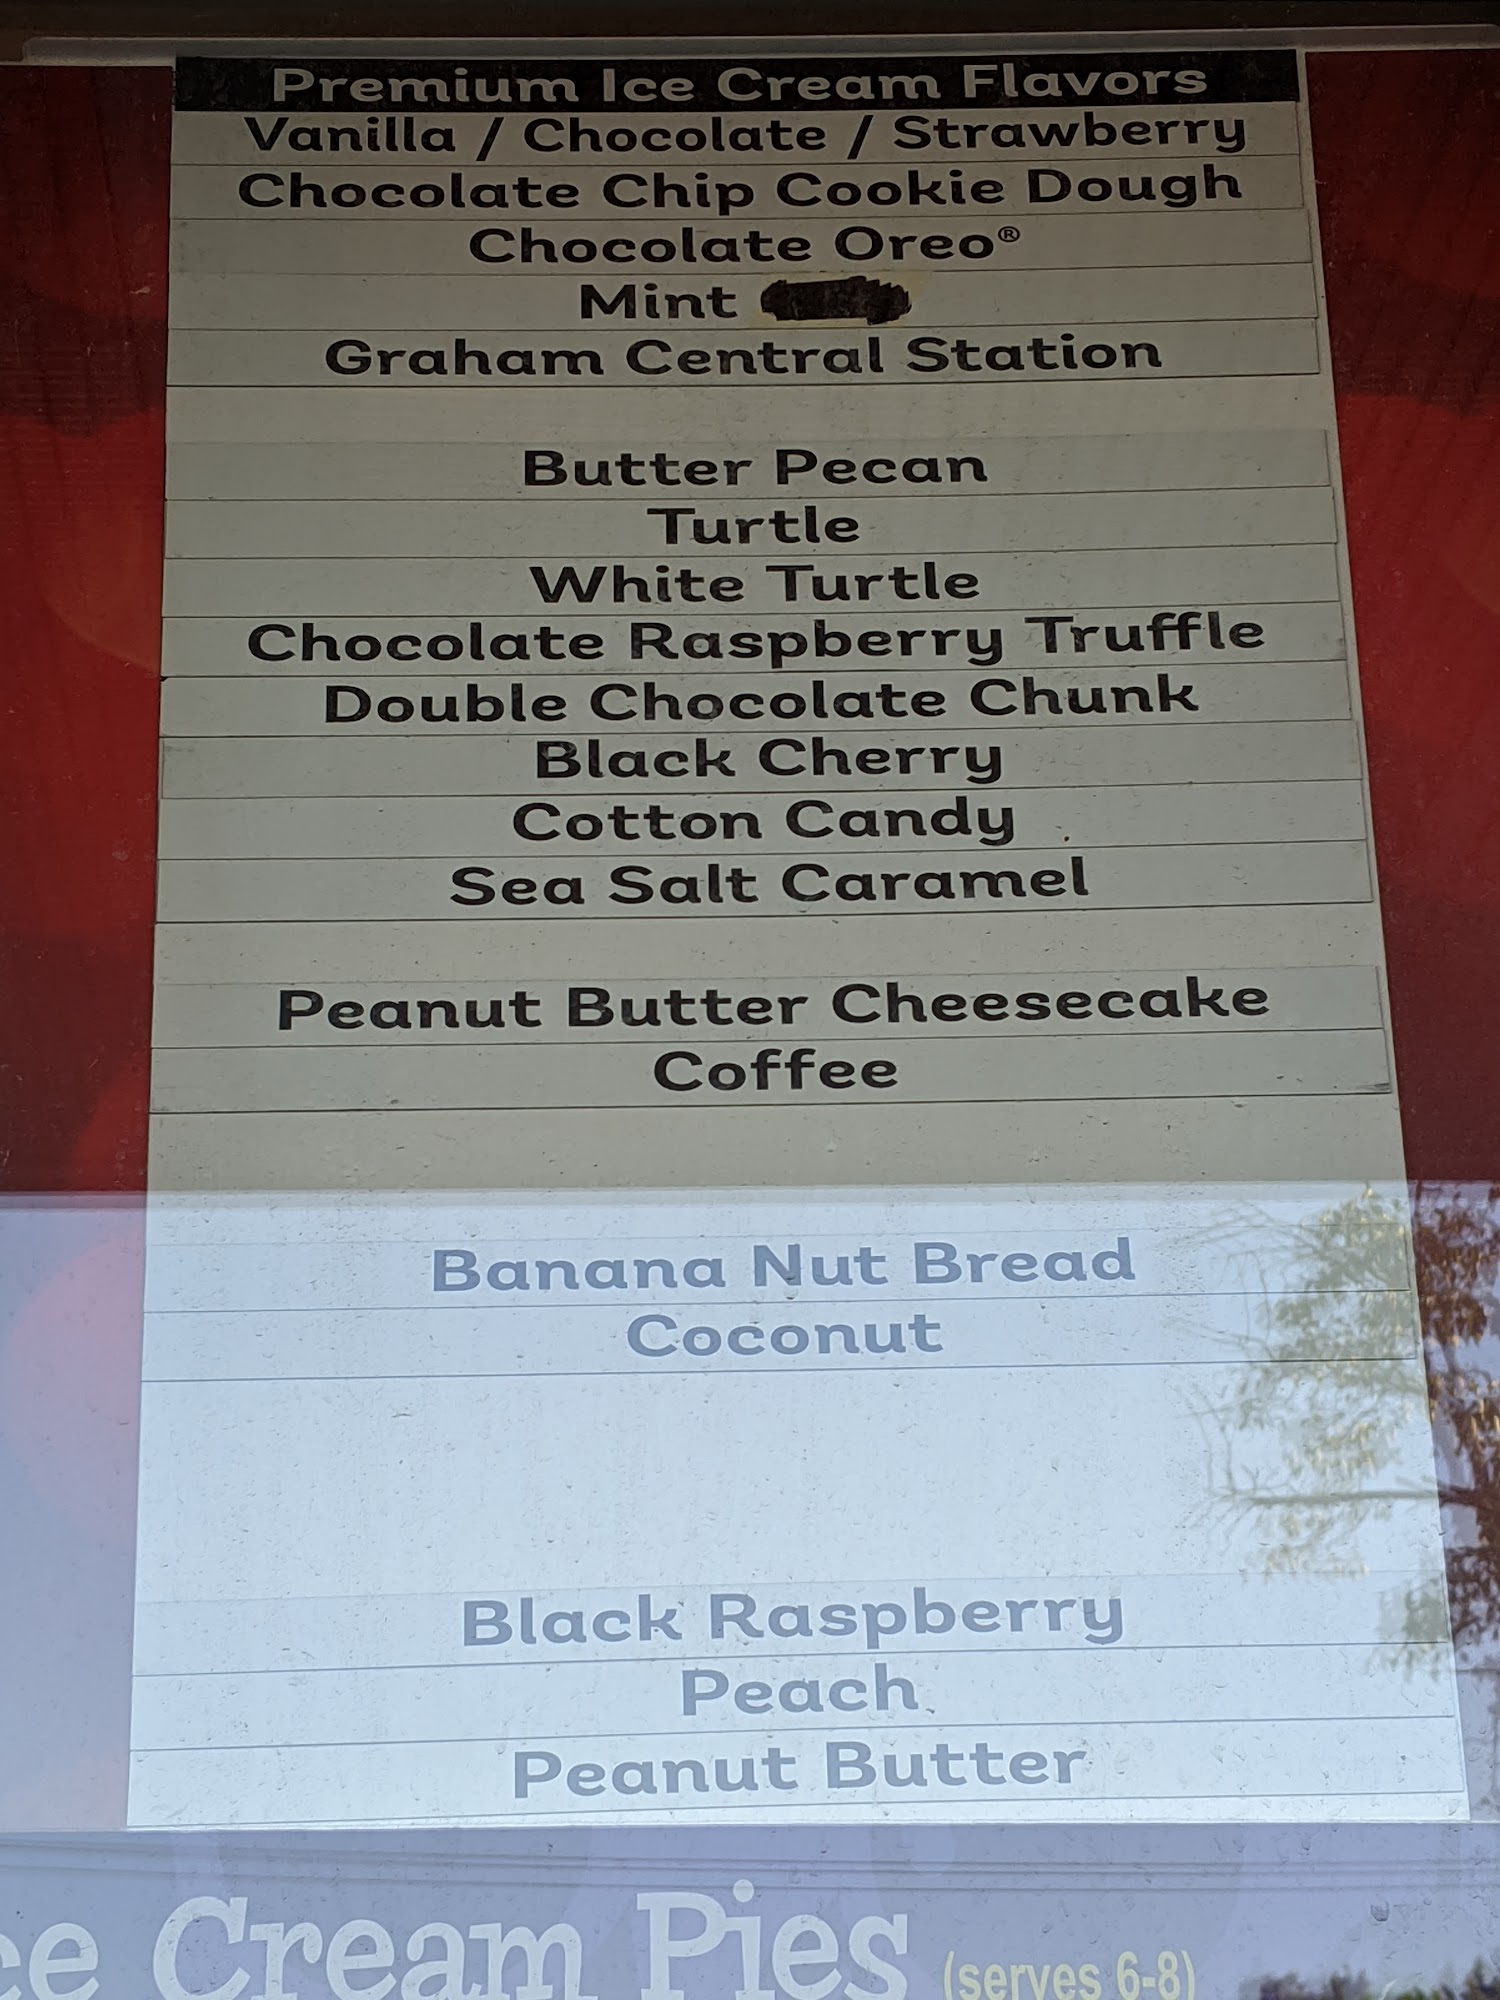 Premium Ice Cream Flavors
Vanilla / Chocolate / Strawberry
Chocolate Chip Cookie Dough
Chocolate Oreo®
Mint
Graham Central Station
Butter Pecan
Turtle
White Turtle
Chocolate Raspberry Truffle
Double Chocolate Chunk
Black Cherry
Cotton Candy
Sea Salt Caramel
Peanut Butter Cheesecake
Coffee
Banana Nut Bread
Coconut
Black Raspberry
Peach
Peanut Butter
ce Cream Pies (serves 6-8)